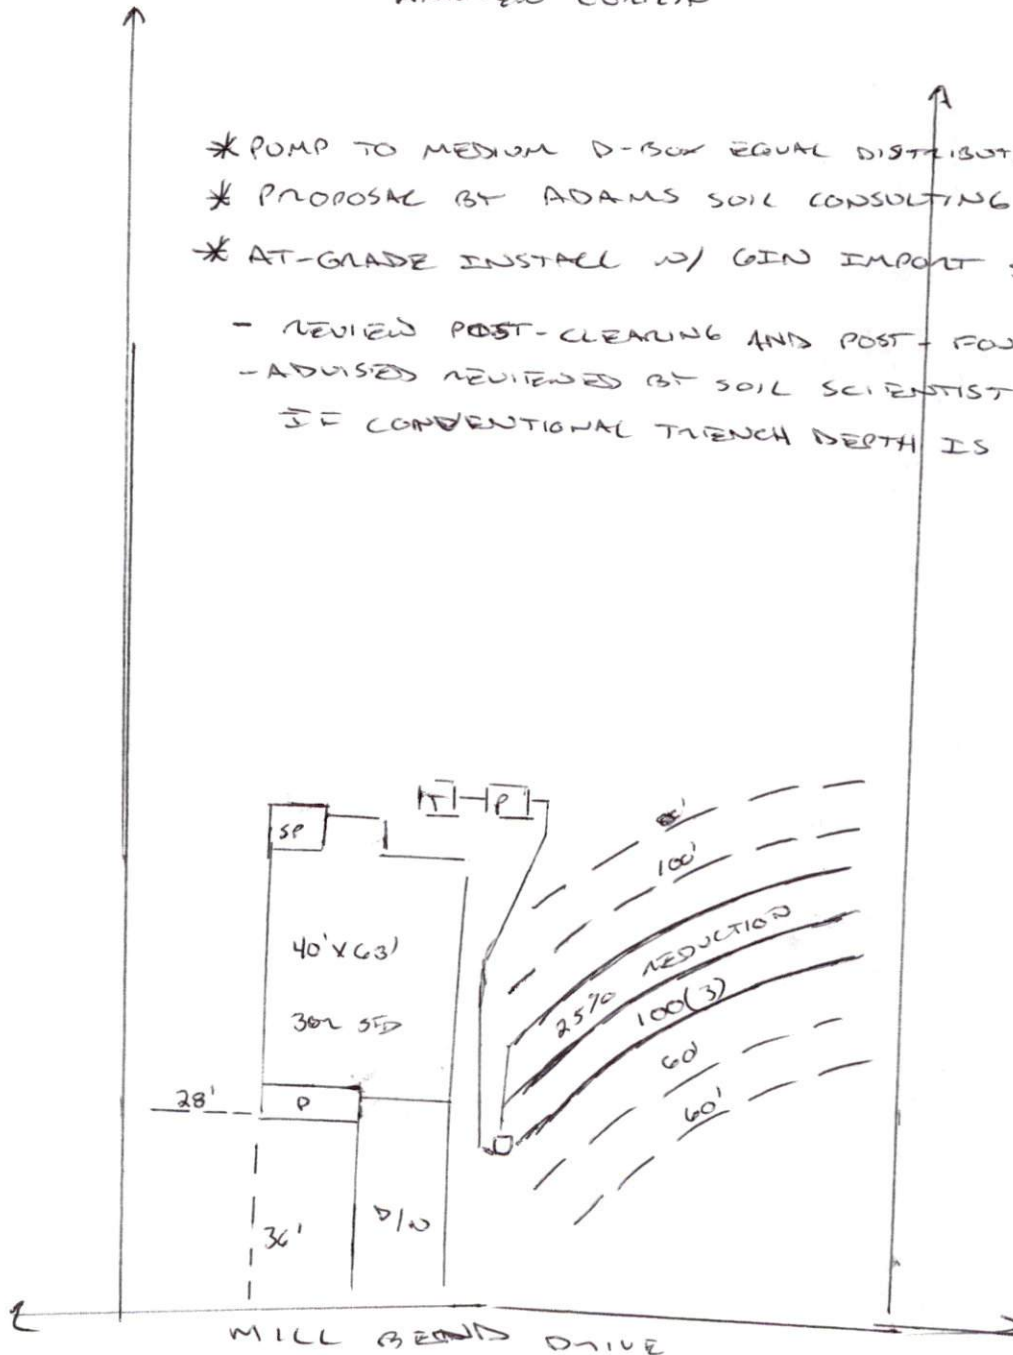 * PUMP TO MEDIUM D-BOX EQUAL DISTRIBUT
* PROPOSAL BY ADAMS SOIL CONSULTING
* AT-GRADE INSTALL W/ 6IN IMPORT
- REVIEW POST-CLEARING AND POST-FOU
- ADVISED REVIEWED BY SOIL SCIENTIST
IF CONVENTIONAL TRENCH DEPTH IS
T P
SP
100'
40' X 63'
25% REDUCTION
3BR SFD
100(3)
60'
28'
P
60'
36'
D/W
MILL BEND DRIVE